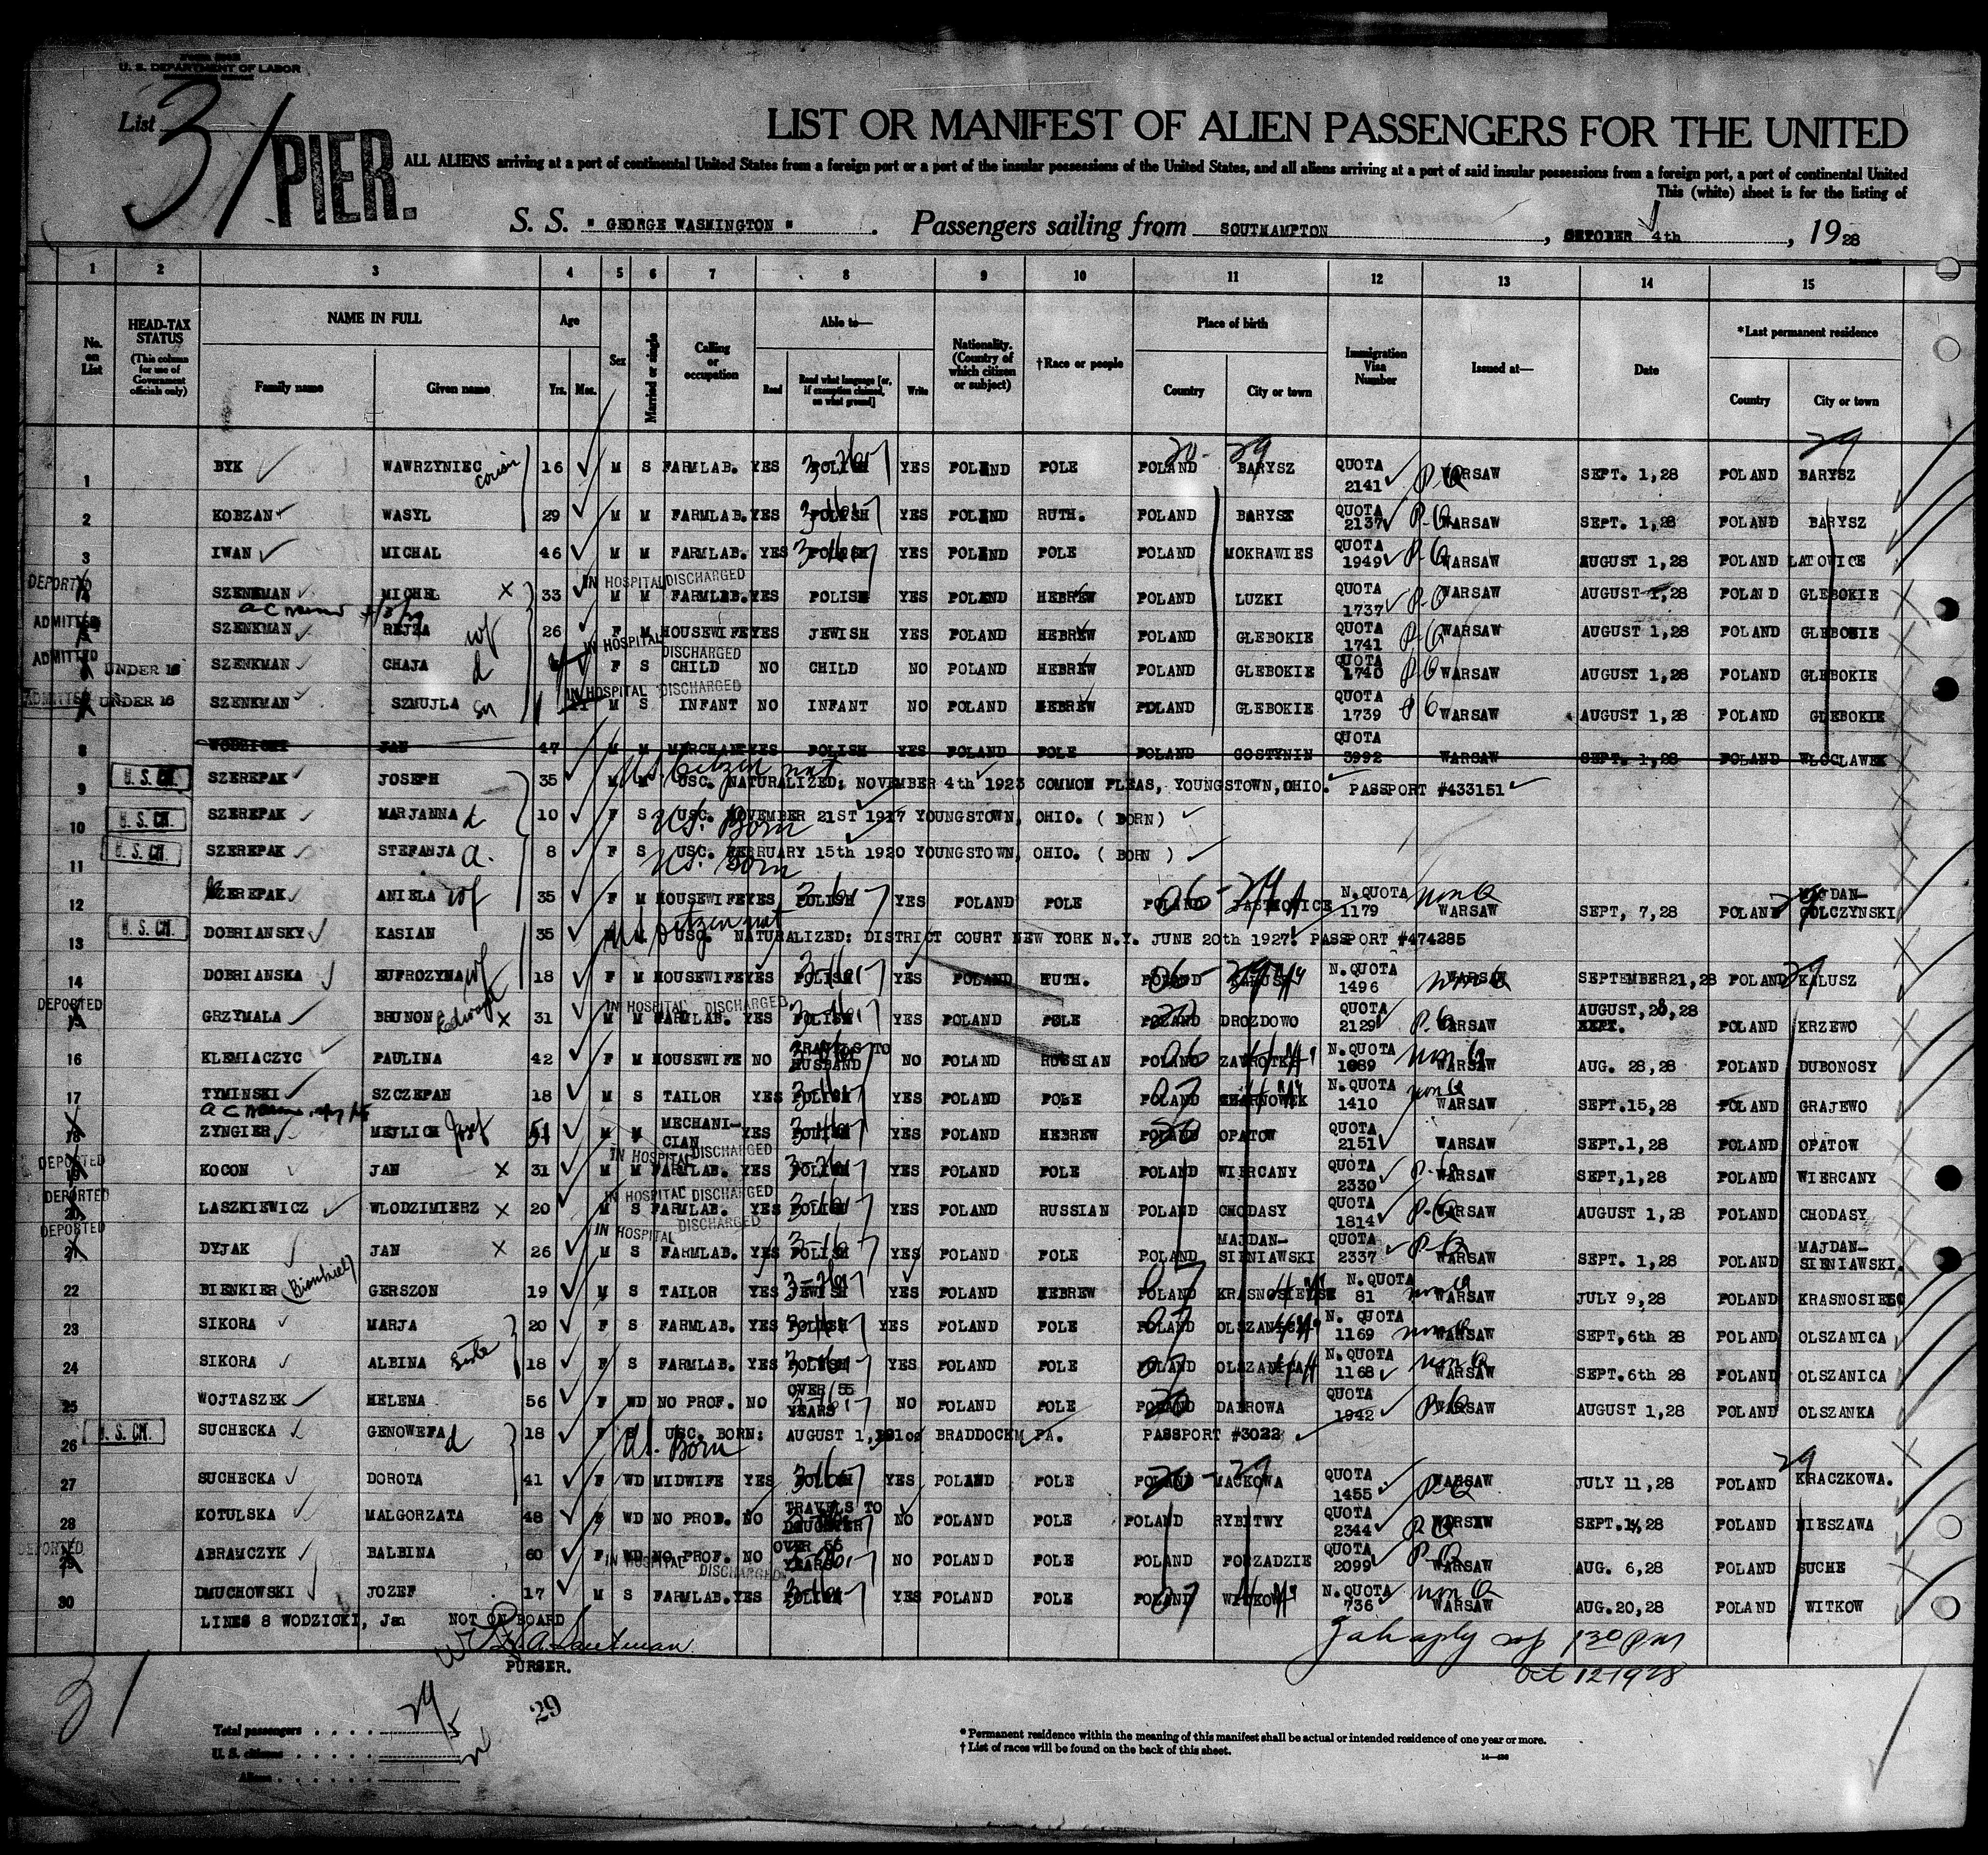 U. S. DEPARTMENT OF LABOR
List 3/ PIER.
LIST OR MANIFEST OF ALIEN PASSENGERS FOR THE UNITED
ALL ALIENS arriving at a port of continental United States from a foreign port or a port of the insular possessions of the United States, and all aliens arriving at a port of said insular possessions from a foreign port, a port of continental United
This (white) sheet is for the listing of
S. S. " GEORGE WASHINGTON " . Passengers sailing from SOUTHAMPTON , OCTOBER 4th , 19 28
1 2 3 4 5 6 7 8 9 10 11 12 13 14 15
No. on List
HEAD-TAX STATUS (This column for use of Government officials only)
NAME IN FULL Family name Given name
Age Yrs. Mos.
Sex
Married or single
Calling or occupation
Able to— Read Read what language [or, if exemption claimed, on what ground] Write
Nationality. (Country of which citizen or subject)
†Race or people
Place of birth Country City or town
Immigration Visa Number
Issued at—
Date
*Last permanent residence Country City or town
1 BYK WAWRZYNIEC 16 M S FARMLAB. YES POLISH YES POLAND POLE POLAND BARYSZ QUOTA 2141 WARSAW SEPT. 1,28 POLAND BARYSZ
2 KOBZAN WASYL 29 M M FARMLAB. YES POLISH YES POLAND RUTH. POLAND BARYSZ QUOTA 2137 WARSAW SEPT. 1,28 POLAND BARYSZ
3 IWAN MICHAL 46 M M FARMLAB. YES POLISH YES POLAND POLE POLAND MOKRAWIES QUOTA 1949 WARSAW AUGUST 1,28 POLAND LATOWICE
DEPORTED SZENKMAN MICHEL X 33 IN HOSPITAL DISCHARGED M M FARMLAB. YES POLISH YES POLAND HEBREW POLAND LUZKI QUOTA 1737 WARSAW AUGUST 1,28 POLAND GLEBOKIE
ADMITTED SZENKMAN REJZA wf 26 F M HOUSEWIFE YES JEWISH YES POLAND HEBREW POLAND GLEBOKIE QUOTA 1741 WARSAW AUGUST 1,28 POLAND GLEBOKIE
ADMITTED UNDER 16 SZENKMAN CHAJA d IN HOSPITAL DISCHARGED F S CHILD NO CHILD NO POLAND HEBREW POLAND GLEBOKIE QUOTA 1740 WARSAW AUGUST 1,28 POLAND GLEBOKIE
ADMITTED UNDER 16 SZENKMAN SZMUJLA sn 11 IN HOSPITAL DISCHARGED M S INFANT NO INFANT NO POLAND HEBREW POLAND GLEBOKIE QUOTA 1739 WARSAW AUGUST 1,28 POLAND GLEBOKIE
8 WODZICKI JAN 47 M M MERCHANT YES POLISH YES POLAND POLE POLAND GOSTYNIN QUOTA 3992 WARSAW SEPT. 1,28 POLAND WLOCLAWEK
9 U. S. CIT. SZEREPAK JOSEPH 35 M M US citizen nat USC. NATURALIZED: NOVEMBER 4th 1923 COMMON PLEAS, YOUNGSTOWN, OHIO. PASSPORT #433151
10 U. S. CIT. SZEREPAK MARJANNA d 10 F S US. Born USC. NOVEMBER 21ST 1917 YOUNGSTOWN, OHIO. ( BORN)
11 U. S. CIT. SZEREPAK STEFANJA d. 8 F S US. Born USC. FEBRUARY 15th 1920 YOUNGSTOWN, OHIO. ( BORN )
12 SZEREPAK ANIELA wf 35 F M HOUSEWIFE YES POLISH YES POLAND POLE POLAND N. QUOTA 1179 WARSAW SEPT, 7,28 POLAND MAJDAN-GOLCZYNSKI
13 U. S. CIT. DOBRIANSKY KASIAN 35 US citizen nat USC. NATURALIZED: DISTRICT COURT NEW YORK N.Y. JUNE 20th 1927. PASSPORT #474285
14 DOBRIANSKA EUFROZYNA wf 18 F M HOUSEWIFE YES POLISH YES POLAND RUTH. POLAND KALUSZ N. QUOTA 1496 WARSAW SEPTEMBER 21,28 POLAND KALUSZ
DEPORTED 15 GRZYMALA BRUNON X 31 IN HOSPITAL DISCHARGED M M FARMLAB. YES POLISH YES POLAND POLE POLAND DROZDOWO QUOTA 2129 WARSAW AUGUST, 28,28 SEPT. POLAND KRZEWO
16 KLEMIACZYC PAULINA 42 F M HOUSEWIFE NO TRAVELS TO HUSBAND NO POLAND RUSSIAN POLAND N. QUOTA 1089 WARSAW AUG. 28,28 POLAND DUBONOSY
17 TYMINSKI SZCZEPAN 18 M S TAILOR YES POLISH YES POLAND POLE POLAND N. QUOTA 1410 WARSAW SEPT.15,28 POLAND GRAJEWO
18 ZYNGIER MEJLICH Josef 51 M M MECHANI-CIAN YES POLISH YES POLAND HEBREW POLAND OPATOW QUOTA 2151 WARSAW SEPT.1,28 POLAND OPATOW
DEPORTED 19 KOCON JAN X 31 IN HOSPITAL DISCHARGED M M FARMLAB. YES POLISH YES POLAND POLE POLAND WIERCANY QUOTA 2330 WARSAW SEPT,1,28 POLAND WIERCANY
DEPORTED 20 LASZKIEWICZ WLODZIMIERZ X 20 IN HOSPITAL DISCHARGED M S FARMLAB. YES POLISH YES POLAND RUSSIAN POLAND CHODASY QUOTA 1814 WARSAW AUGUST 1,28 POLAND CHODASY
DEPORTED 21 DYJAK JAN X 26 IN HOSPITAL DISCHARGED M S FARMLAB. YES POLISH YES POLAND POLE POLAND MAJDAN-SIENIAWSKI QUOTA 2337 WARSAW SEPT. 1,28 POLAND MAJDAN-SIENIAWSKI.
22 BIENKIER GERSZON 19 M S TAILOR YES JEWISH YES POLAND HEBREW POLAND N. QUOTA 81 WARSAW JULY 9,28 POLAND KRASNOSIELC
23 SIKORA MARJA 20 F S FARMLAB. YES POLISH YES POLAND POLE POLAND OLSZANICA N. QUOTA 1169 WARSAW SEPT,6th 28 POLAND OLSZANICA
24 SIKORA ALBINA Sister 18 F S FARMLAB. YES POLISH YES POLAND POLE POLAND OLSZANICA N. QUOTA 1168 WARSAW SEPT.6th 28 POLAND OLSZANICA
25 WOJTASZEK HELENA 56 F WD NO PROF. NO OVER 55 YEARS NO POLAND POLE POLAND DABROWA QUOTA 1942 WARSAW AUGUST 1,28 POLAND OLSZANKA
26 U. S. CIT. SUCHECKA GENOWEFA d 18 F S US. Born USC. BORN: AUGUST 1, BRADDOCK PA. PASSPORT #3022
27 SUCHECKA DOROTA 41 F WD MIDWIFE YES POLISH YES POLAND POLE POLAND MACKOWA QUOTA 1455 WARSAW JULY 11,28 POLAND KRACZKOWA.
28 KOTULSKA MALGORZATA 48 F WD NO PROF. NO TRAVELS TO DAUGHTER NO POLAND POLE POLAND RYBITWY QUOTA 2344 WARSAW SEPT.14,28 POLAND NIESZAWA
DEPORTED 29 ABRAMCZYK BALBINA 60 F WD NO PROF. NO IN HOSPITAL DISCHARGED OVER 55 YEARS NO POLAND POLE POLAND PORZADZIE QUOTA 2099 WARSAW AUG. 6,28 POLAND SUCHE
30 DMUCHOWSKI JOZEF 17 M S FARMLAB. YES POLISH YES POLAND POLE POLAND WITKOW N. QUOTA 736 WARSAW AUG.20,28 POLAND WITKOW
LINES 8 WODZICKI, Jan NOT ON BOARD
PURSER.
130 PM
Oct 12 1928
31
29
Total passengers
U. S. citizens
Aliens
* Permanent residence within the meaning of this manifest shall be actual or intended residence of one year or more.
† List of races will be found on the back of this sheet.